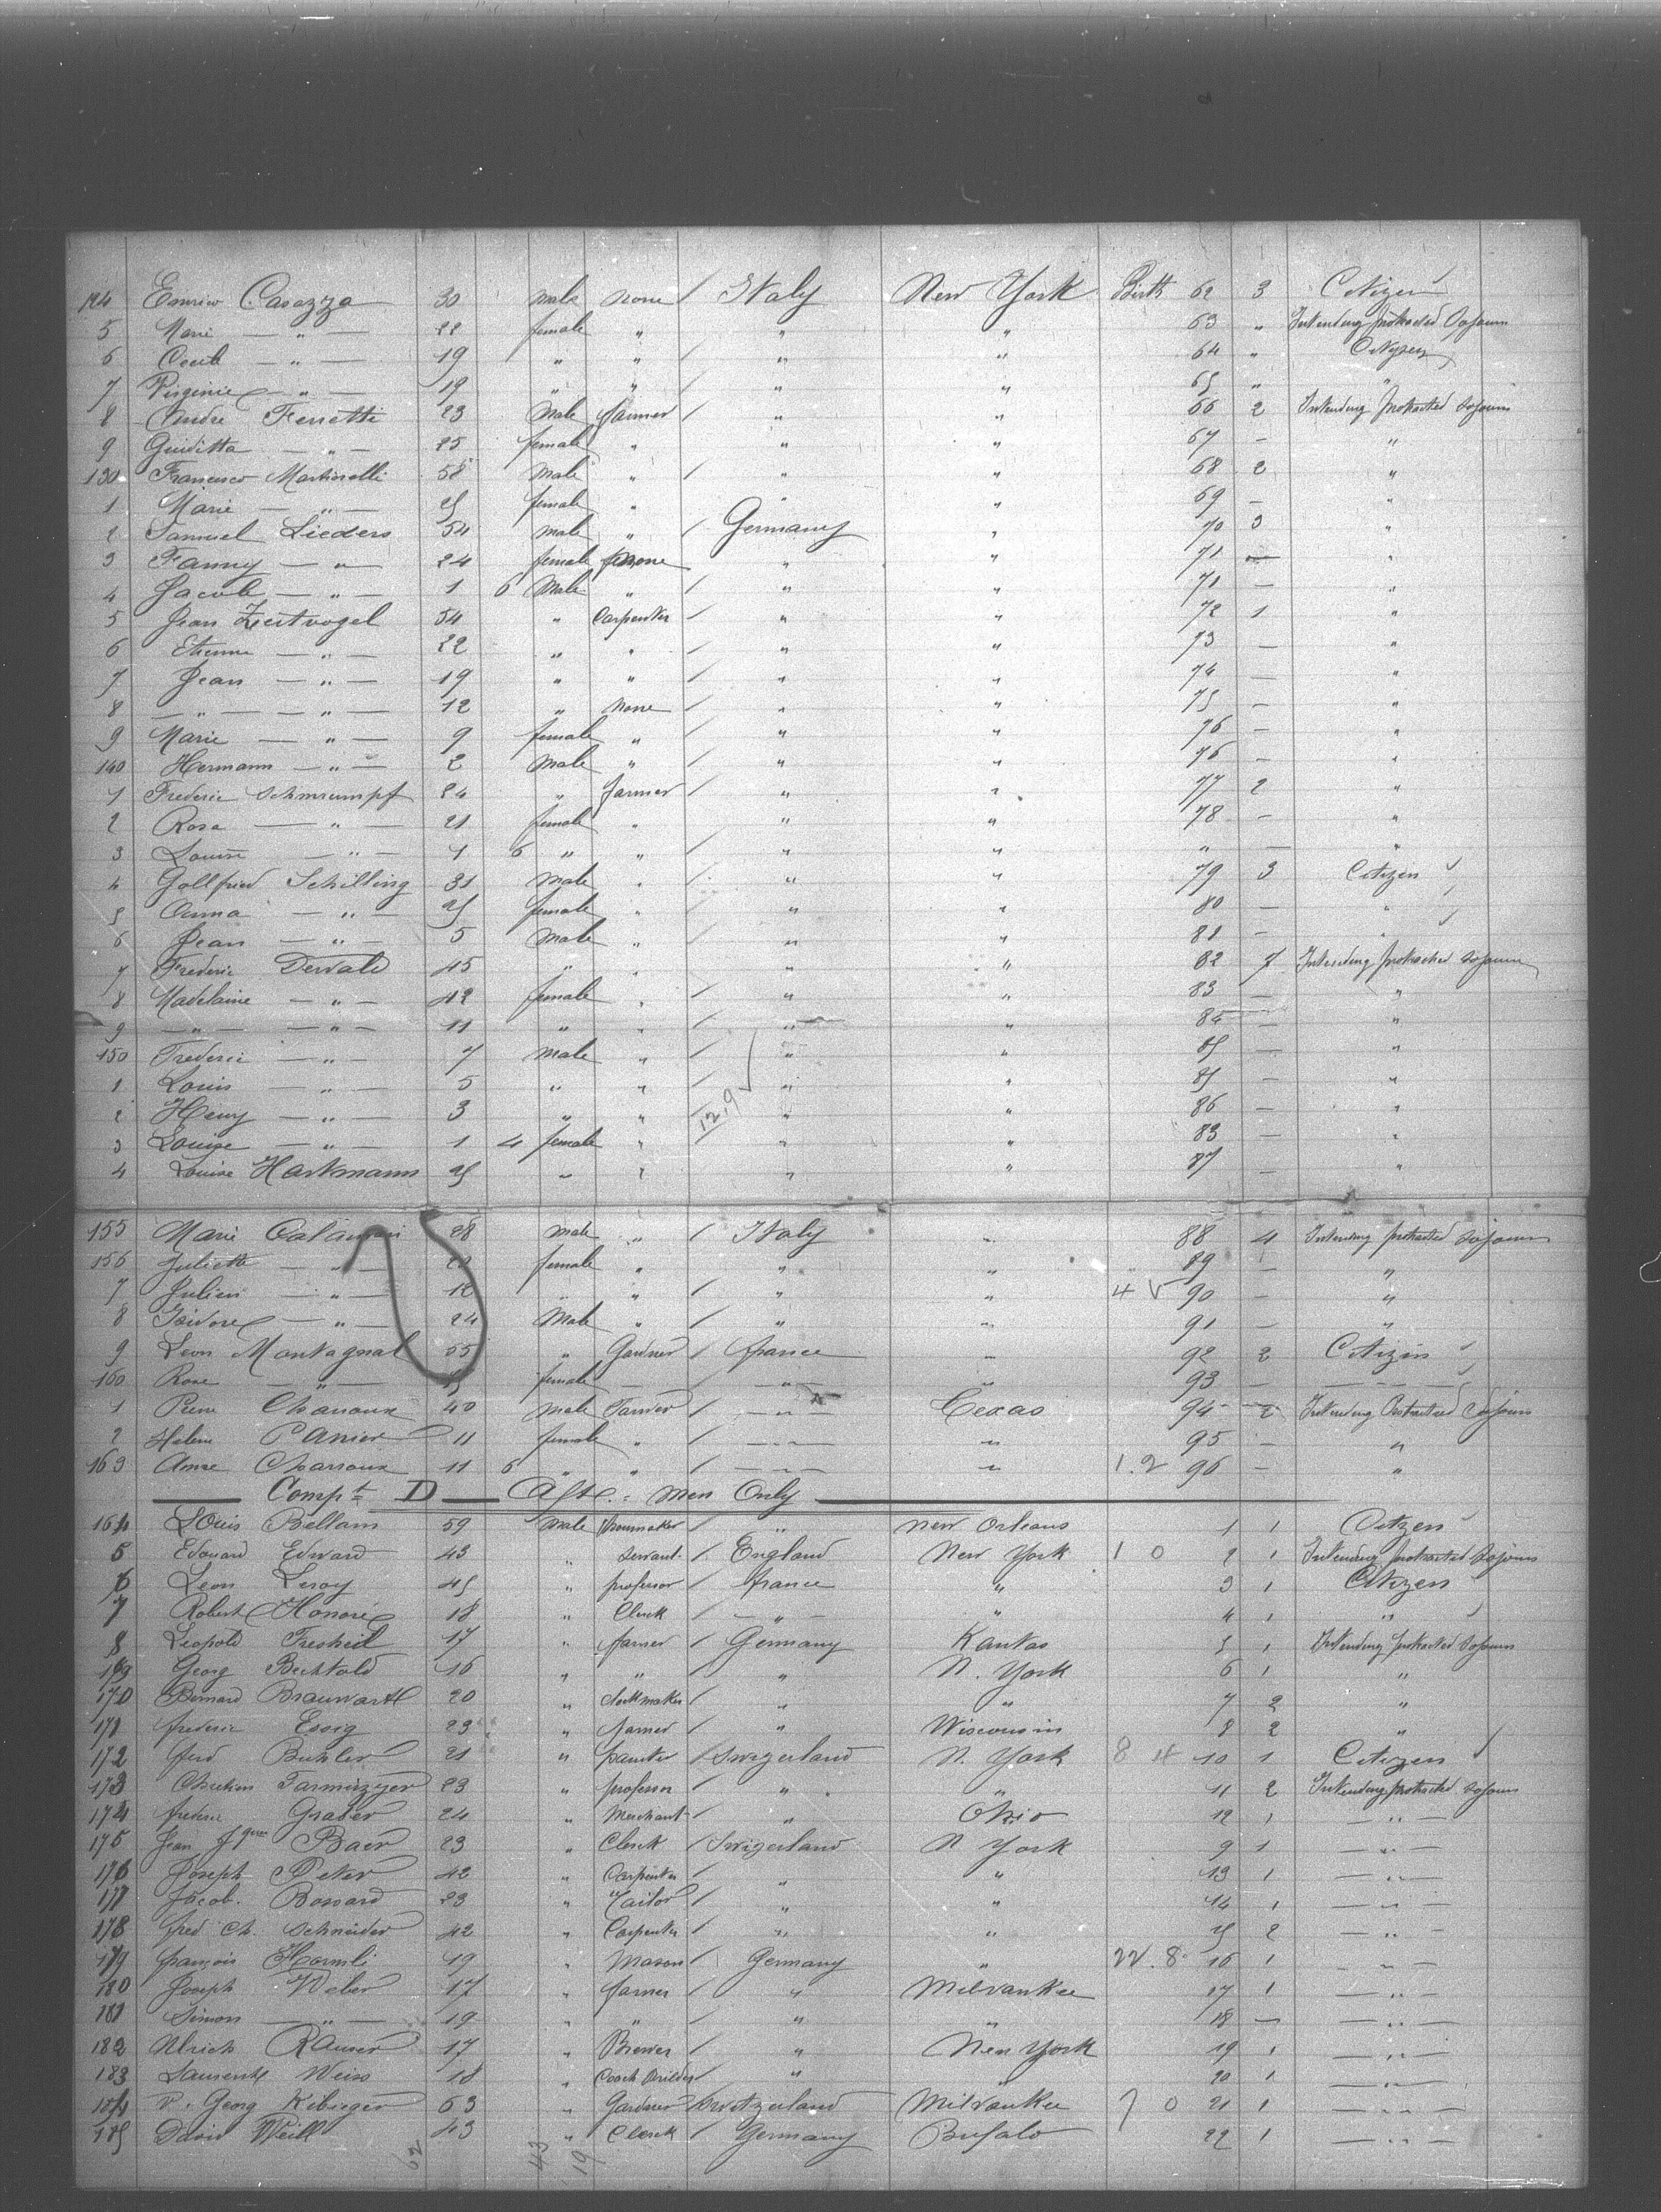 124 Enrico Casazza 30 male none / Italy New York Birth 62 3 Citizen
5 Marie — " — 22 female " " " 63 " Intending protracted Sojourn
6 Cecile — " — 19 " " / " " 64 " Citizen
7 Virginie — " — 19 " " / " " 65 " "
8 Andre Ferretti 23 Male farmer / " " 66 2 Intending protracted Sojourn
9 Guiditta — " — 25 female " " " 67 — "
130 Francesco Martinelli 58 Male " / " " 68 2 "
1 Marie — " — 25 female " " " 69 — "
2 Samuel Lieders 54 male " / Germany " 70 3 "
3 Fanny — " — 24 female none " " 71 — "
4 Jacob — " — 1 6 Male " / " " 71 — "
5 Jean Zeitvogel 54 " Carpenter / " " 72 1 "
6 Etienne — " — 22 " " / " " 73 — "
7 Jean — " — 19 " " / " " 74 — "
8 — " — — " — 12 " none / " " 75 — "
9 Marie — " — 9 female " / " " 76 — "
140 Hermann — " — 2 Male " / " " 76 — "
1 Frederic Schmrumpf 24 " farmer / " " 77 2 "
2 Rosa — " — 21 female " " " 78 — "
3 Louise — " — 1 6 " " / " " " — "
4 Gottfried Schilling 31 male " / " " 79 3 Citizen
5 Anna — " — 25 female " / " " 80 — "
6 Jean — " — 5 male " / " " 81 — "
7 Frederic 45 " " / " " 82 7 Intending protracted sojourn
8 Madelaine — " — 42 female " / " " 83 — "
9 — " — — " — 11 " " / " " 84 — "
150 Frederic — " — 7 male " / " " 85 — "
1 Louis — " — 5 " " / " " 85 — "
2 Henry — " — 3 " " / " " 86 — "
3 Louise — " — 1 4 female " / " " 83 — "
4 Louise Hartmann 25 " " " " 87 — "
155 Marie 28 male " / Italy " 88 4 Intending protracted sojourn
156 Juliette — " — female " " " 89 — "
7 Julien — " — 12 " " / " " 4 90 — "
8 Isidore — " — 24 Male " / " " 91 — "
9 Leon Montagnal 55 " Gardner / france " 92 2 Citizin
160 Rose — " — female / — " — " 93 —
1 Pierre Charroux 40 male / — " — Texas 94 2 Intending Protracted Sojourn
2 Helene Panier 11 female " / — " — " 95 — "
163 Charroux 11 6 " " / — " — " 1.2 96 — "
Compt D — Aft : men Only
164 Louis Bellam 59 male / " new Orleans 1 1 Citizen
5 Edouard Edward 43 " servant / England New York 1 0 2 1 Intending protracted Sojourn
6 Leon Leroy 45 " professor / france " 3 1 Citizen
7 Robert Honorie 18 " Clerk / — " — " 4 1 "
8 Leopold 17 " farmer / Germany Kansas 5 1 Intending protracted Sojourn
169 Georg Bechtold 16 " " / " N. York 6 1 "
170 Bernard Brauwartl 20 " clockmaker / " " 7 2 "
171 frederic Essig 23 " farmer / " Wisconsin 8 2 "
172 ferd Buhler 21 " painter / Swizerland N. York 8 10 1 Citizen
173 Chretien 23 " professor / " " 11 2 Intending protracted sojourn
174 frederic Graber 24 " Merchant / " Ohio 12 1 — " —
175 Jean Baer 23 " Clerk / Swizerland N York 9 1 — " —
176 Joseph Peter 42 " Carpenter / " " 13 1 — " —
177 Jacob. Bossard 23 " Tailor / " " 14 1 — " —
178 fred Ch. Schneider 42 " Carpenter / " " 15 2 — " —
179 françois 19 " Mason Germany " 22.8 16 1 — " —
180 Joseph Weber 17 " farmer / " Milvankee 17 1 — " —
181 Simon — " — 19 " " / " " 18 — — " —
182 Ulrich Rauser 17 " Brewer / " New York 19 1 — " —
183 Laurent Weiss 18 " Coach Builder / " " 20 1 — " —
184 Georg Kibieger 63 " Gardner / Switzerland Milvankee 7 0 21 1 — " —
185 David Weill 43 " Clerck / Germany Bufalo 22 1 — " —
62 43 19